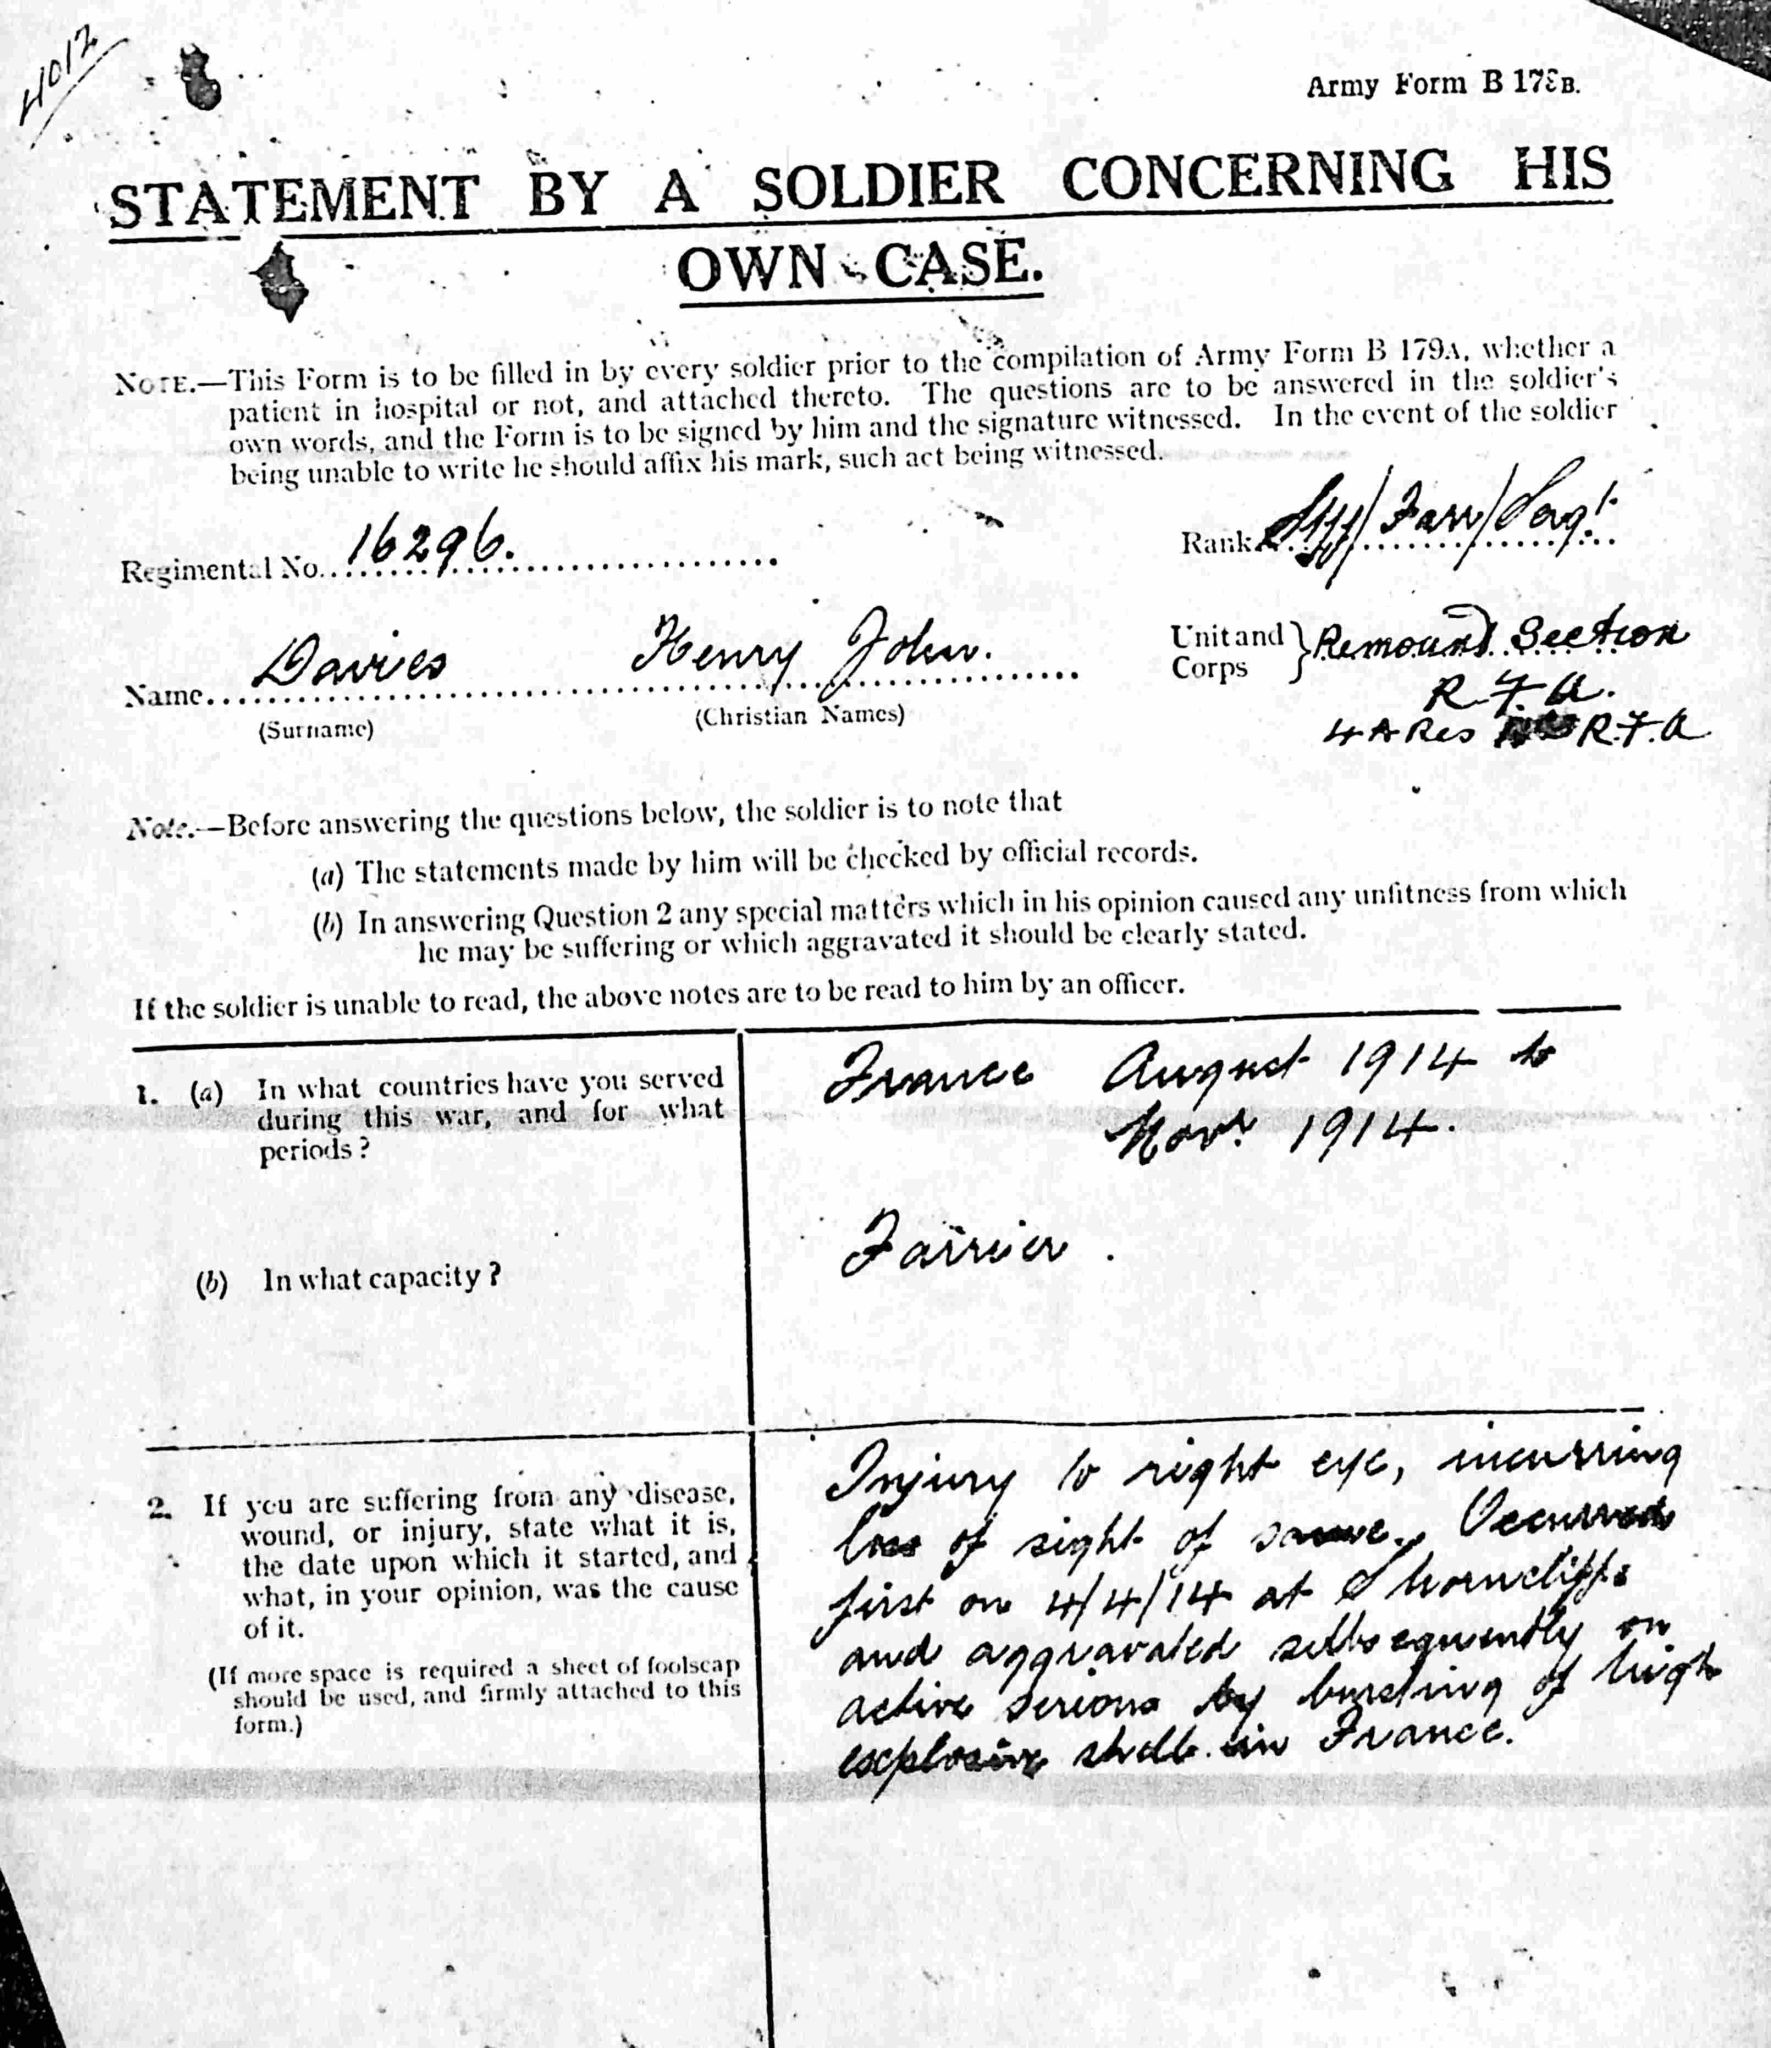 4012
Army Form B 179B.
STATEMENT BY A SOLDIER CONCERNING HIS
OWN CASE.
NOTE.—This Form is to be filled in by every soldier prior to the compilation of Army Form B 179A, whether a
patient in hospital or not, and attached thereto. The questions are to be answered in the soldier's
own words, and the Form is to be signed by him and the signature witnessed. In the event of the soldier
being unable to write he should affix his mark, such act being witnessed.
Regimental No. 16296. Rank Stff/Farr/Sergt.
Name Davies Henry John. Unit and Corps } Remount Section
(Surname) (Christian Names)
R.F.A.
4 A Res R.F.A
Note.—Before answering the questions below, the soldier is to note that
(a) The statements made by him will be checked by official records.
(b) In answering Question 2 any special matters which in his opinion caused any unfitness from which
he may be suffering or which aggravated it should be clearly stated.
If the soldier is unable to read, the above notes are to be read to him by an officer.
1. (a) In what countries have you served
during this war, and for what
periods?
France August 1914 to
Novr 1914.
(b) In what capacity?
Farrier.
2. If you are suffering from any disease,
wound, or injury, state what it is,
the date upon which it started, and
what, in your opinion, was the cause
of it.
(If more space is required a sheet of foolscap
should be used, and firmly attached to this
form.)
Injury to right eye, incurring
loss of sight of same. Occurred
first on 4/4/14 at Shorncliffe
and aggravated subsequently on
active serious by bursting of high
explosive shell in France.